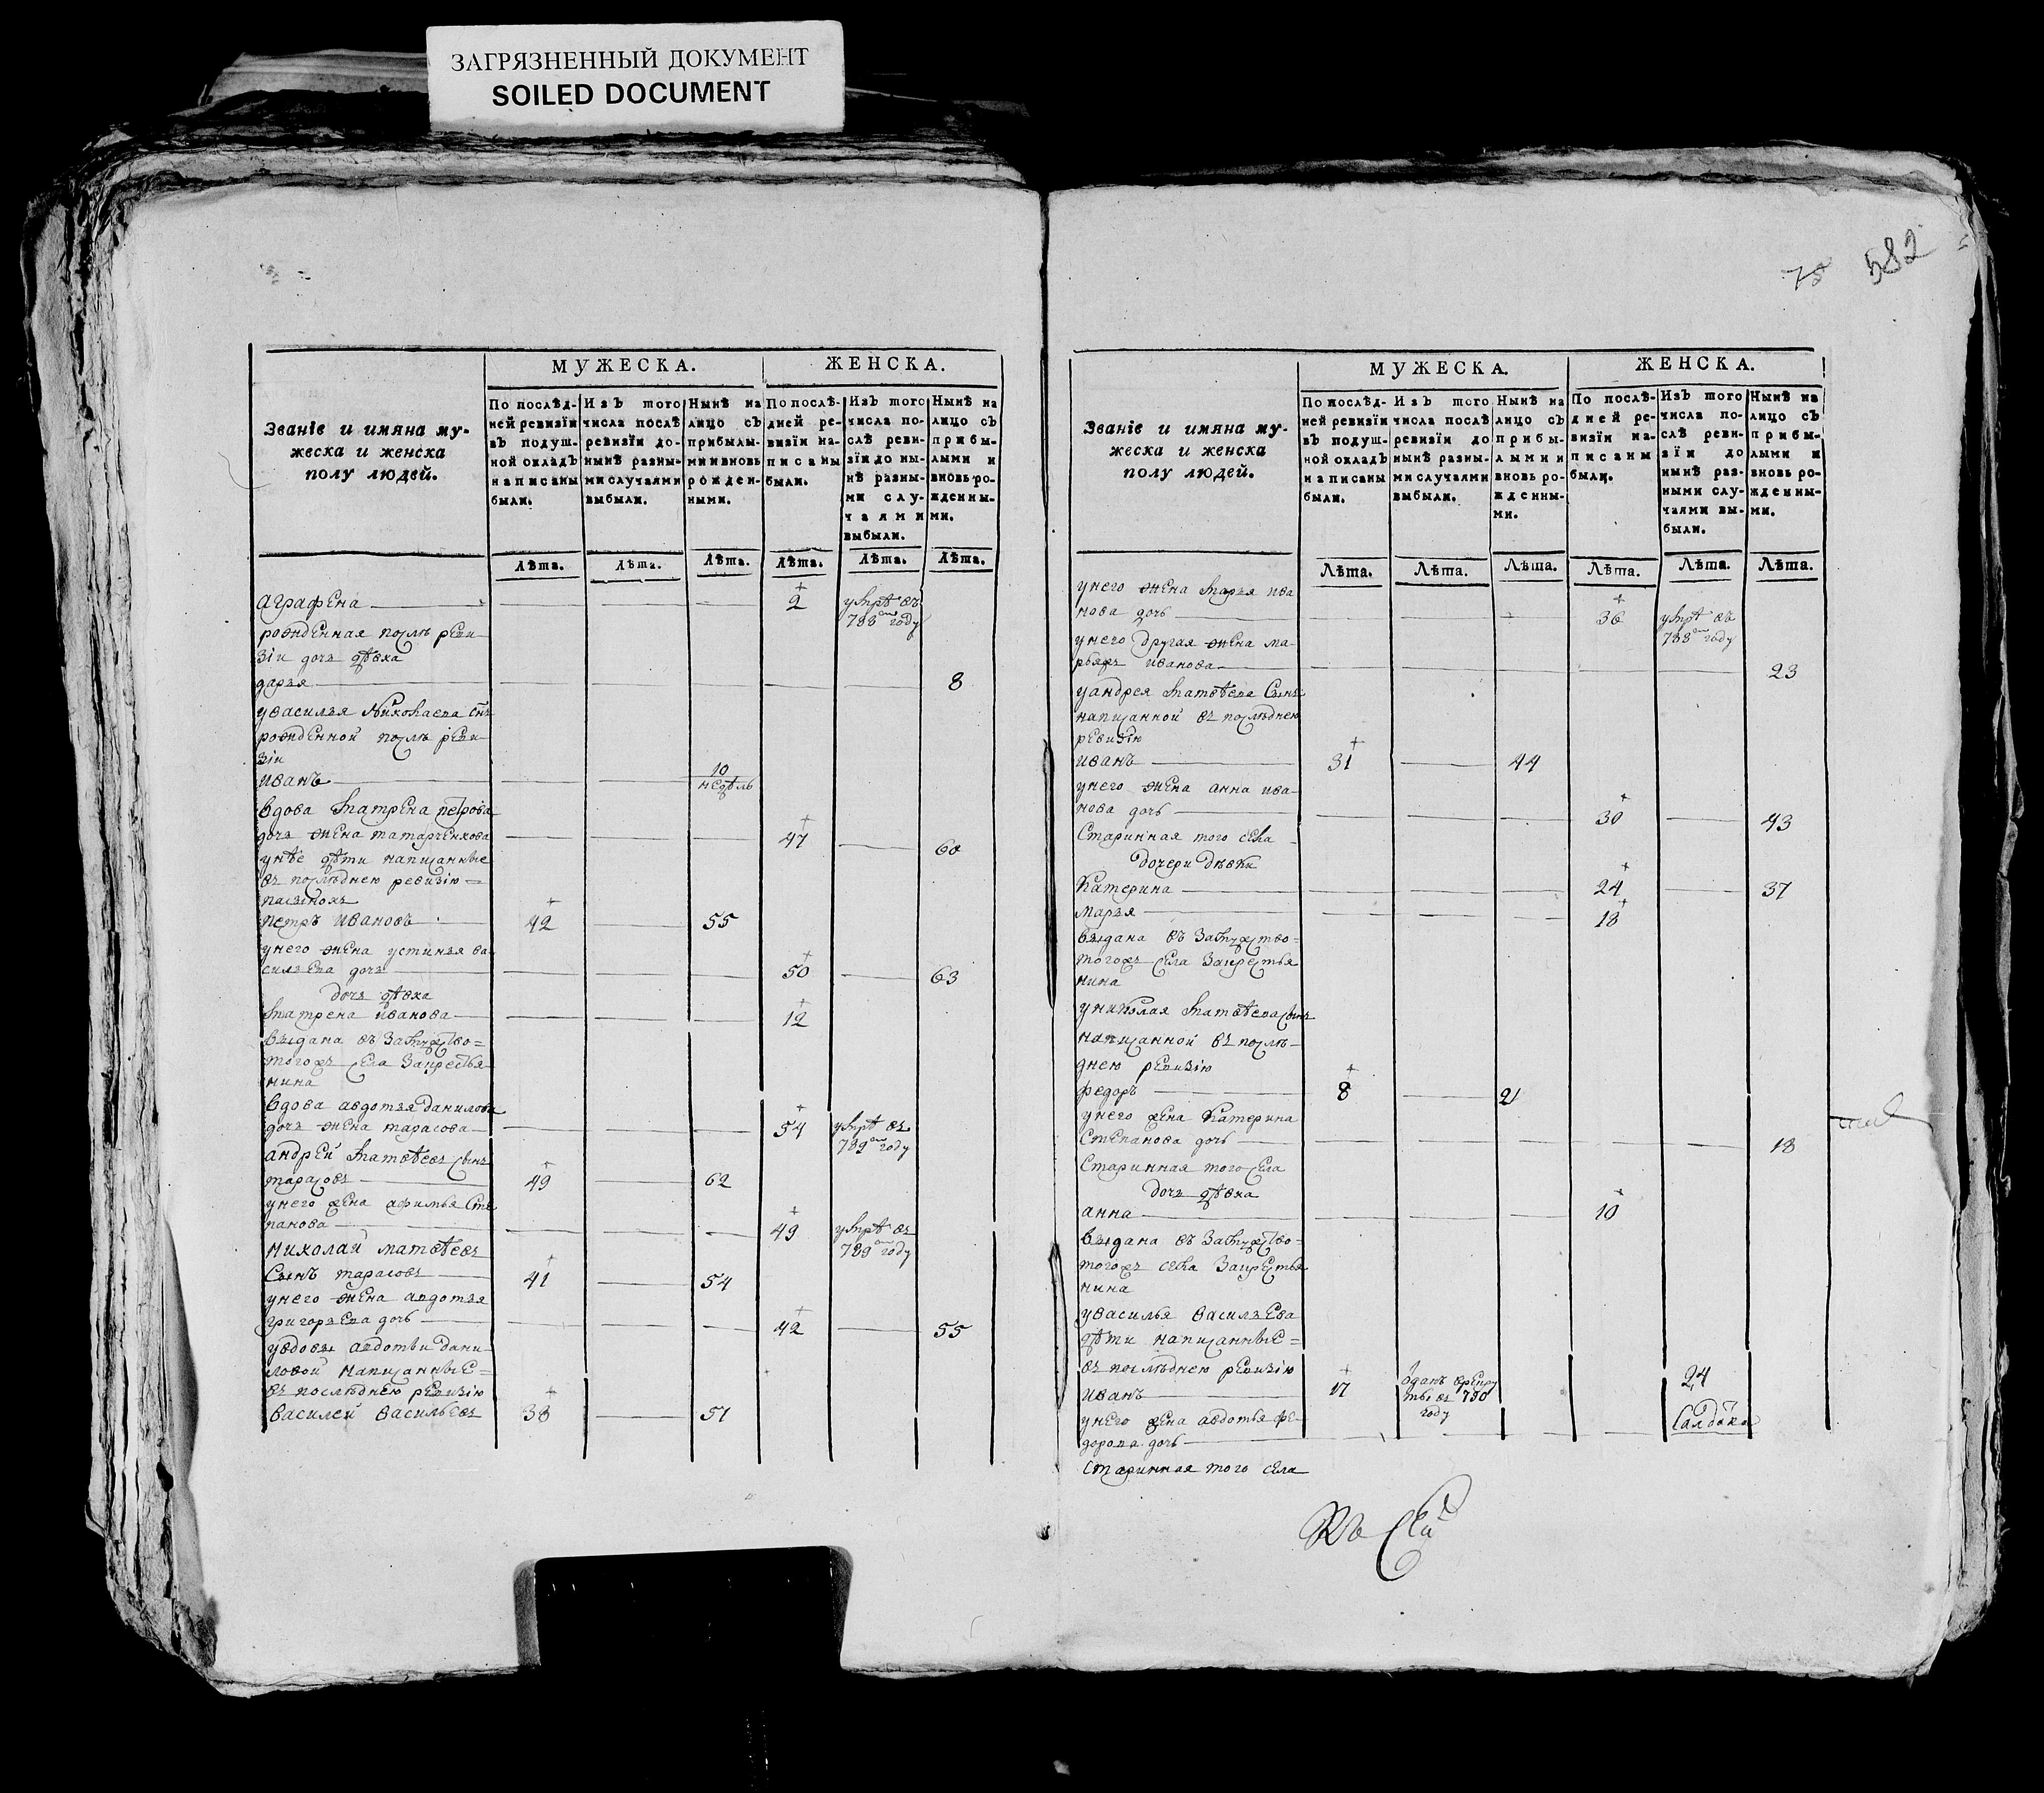 ЗАГРЯЗНЕННЫЙ ДОКУМЕНТ
SOILED DOCUMENT
МУЖЕСКА. ЖЕНСКА.
Званіе и имяна му-
жеска и женска
полу людей.
По послѣд-
ней ревизіи
въ подуш-
ной окладъ
написаны
были.
Изъ того
числа послѣ
ревизіи до-
нынѣ разны-
ми случаями
выбыли.
Нынѣ на
лицо съ
прибылы-
ми и вновь
рожден-
ными.
По послѣ-
дней ре-
визіи на-
писаны
были.
Изъ того
числа по-
слѣ реви-
зіи до ны-
нѣ разны-
ми слу-
чаями
выбыли.
Нынѣ на
лицо съ
прибы-
лыми и
вновь ро-
жденны-
ми.
Лѣта. Лѣта. Лѣта. Лѣта. Лѣта. Лѣта.
аграфена 2 умрѣ въ
788 году
рожденная послѣ реви
зіи дочь дѣвка
дарья 8
у василья Николаева снъ
рожденной послѣ реви
зіи
иванъ 10
недѣль
вдова матрена петрова
дочь жена татарченкова 47 60
у нѣе дѣти написанные
въ послѣднею ревизію
пасынокъ
петръ ивановъ 42 55
у него жена устинья ва
сильева дочь 50 63
дочь дѣвка
матрена иванова 12
выдана въ замужство
тогожъ села закрестья
нина
вдова авдотья данилова
дочь жена тарасова 54 умрѣ въ
789 году
андрей матвѣевъ сынъ
тарасовъ 49 62
у него жена афимья сте
панова 49 умрѣ въ
789 году
николай матвѣевъ
сынъ тарасовъ 41 54
у него жена авдотья
григорьева дочь 42 55
у вдовы авдотьи дани
ловой написанные
въ послѣднею ревизію
василей васильевъ 38 51
75 582
МУЖЕСКА. ЖЕНСКА.
Званіе и имяна му-
жеска и женска
полу людей.
По послѣд-
ней ревизіи
въ подуш-
ной окладъ
написаны
были.
Изъ того
числа послѣ
ревизіи до
нынѣ разны-
ми случаями
выбыли.
Нынѣ на
лицо съ
прибы-
лыми и
вновь ро-
жденны-
ми.
По послѣ-
дней ре-
визіи на-
писаны
были.
Изъ того
числа по-
слѣ реви-
зіи до
нынѣ раз-
ными слу-
чаями вы-
были.
Нынѣ на
лицо съ
прибы-
лыми и
вновь ро-
жденны-
ми.
Лѣта. Лѣта. Лѣта. Лѣта. Лѣта. Лѣта.
у него жена марья ива
нова дочь 36 умрѣ въ
788 году
у него другая жена ма-
рья иванова 23
у андрея матвѣева сынъ
написанной въ послѣднею
ревизію
иванъ 31 44
у него жена анна ива-
нова дочь 30 43
старинная того села
дочери дѣвки
катерина 24 37
марья 18
выдана въ замужство
тогожъ села закрестья
нина
у николая матвѣева сынъ
написанной въ послѣ-
днею ревизію
федоръ 8 21
у него жена катерина
степанова дочь 18
старинная того села
дочь дѣвка
анна 10
выдана въ замужство
тогожъ села закрестья
нина
у василья васильева
дѣти написанные
въ послѣднею ревизію
иванъ 17 зданъ врекру
ты въ 790
году
24
у него жена авдотья фе-
дорова дочь
салдатка
старинная того села
Къ сей